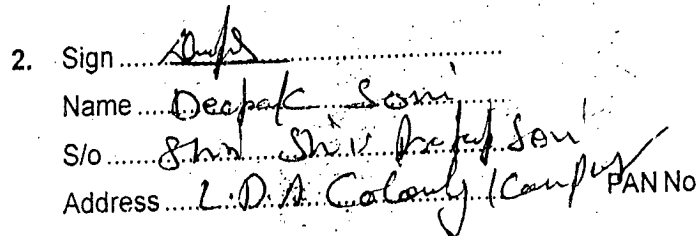 2. Sign
Name Deepak Soni
S/o Shri Shiv Pratap Soni
Address L.D.A Colony / Kanpur PAN No